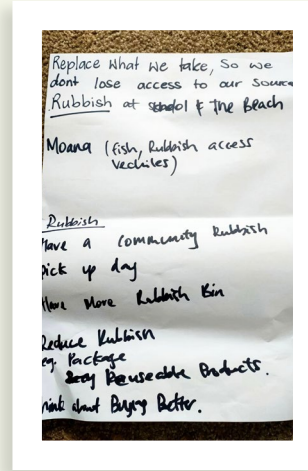 Replace what we take, so we
dont lose access to our source
Rubbish at school & The Beach
Moana (fish, Rubbish access
Vechiles)
Rubbish
Have a community Rubbish
pick up day
Have More Rubbish Bin
Reduce Rubbish
eg. Package
Reuseable Products.
Think about Buying Better.